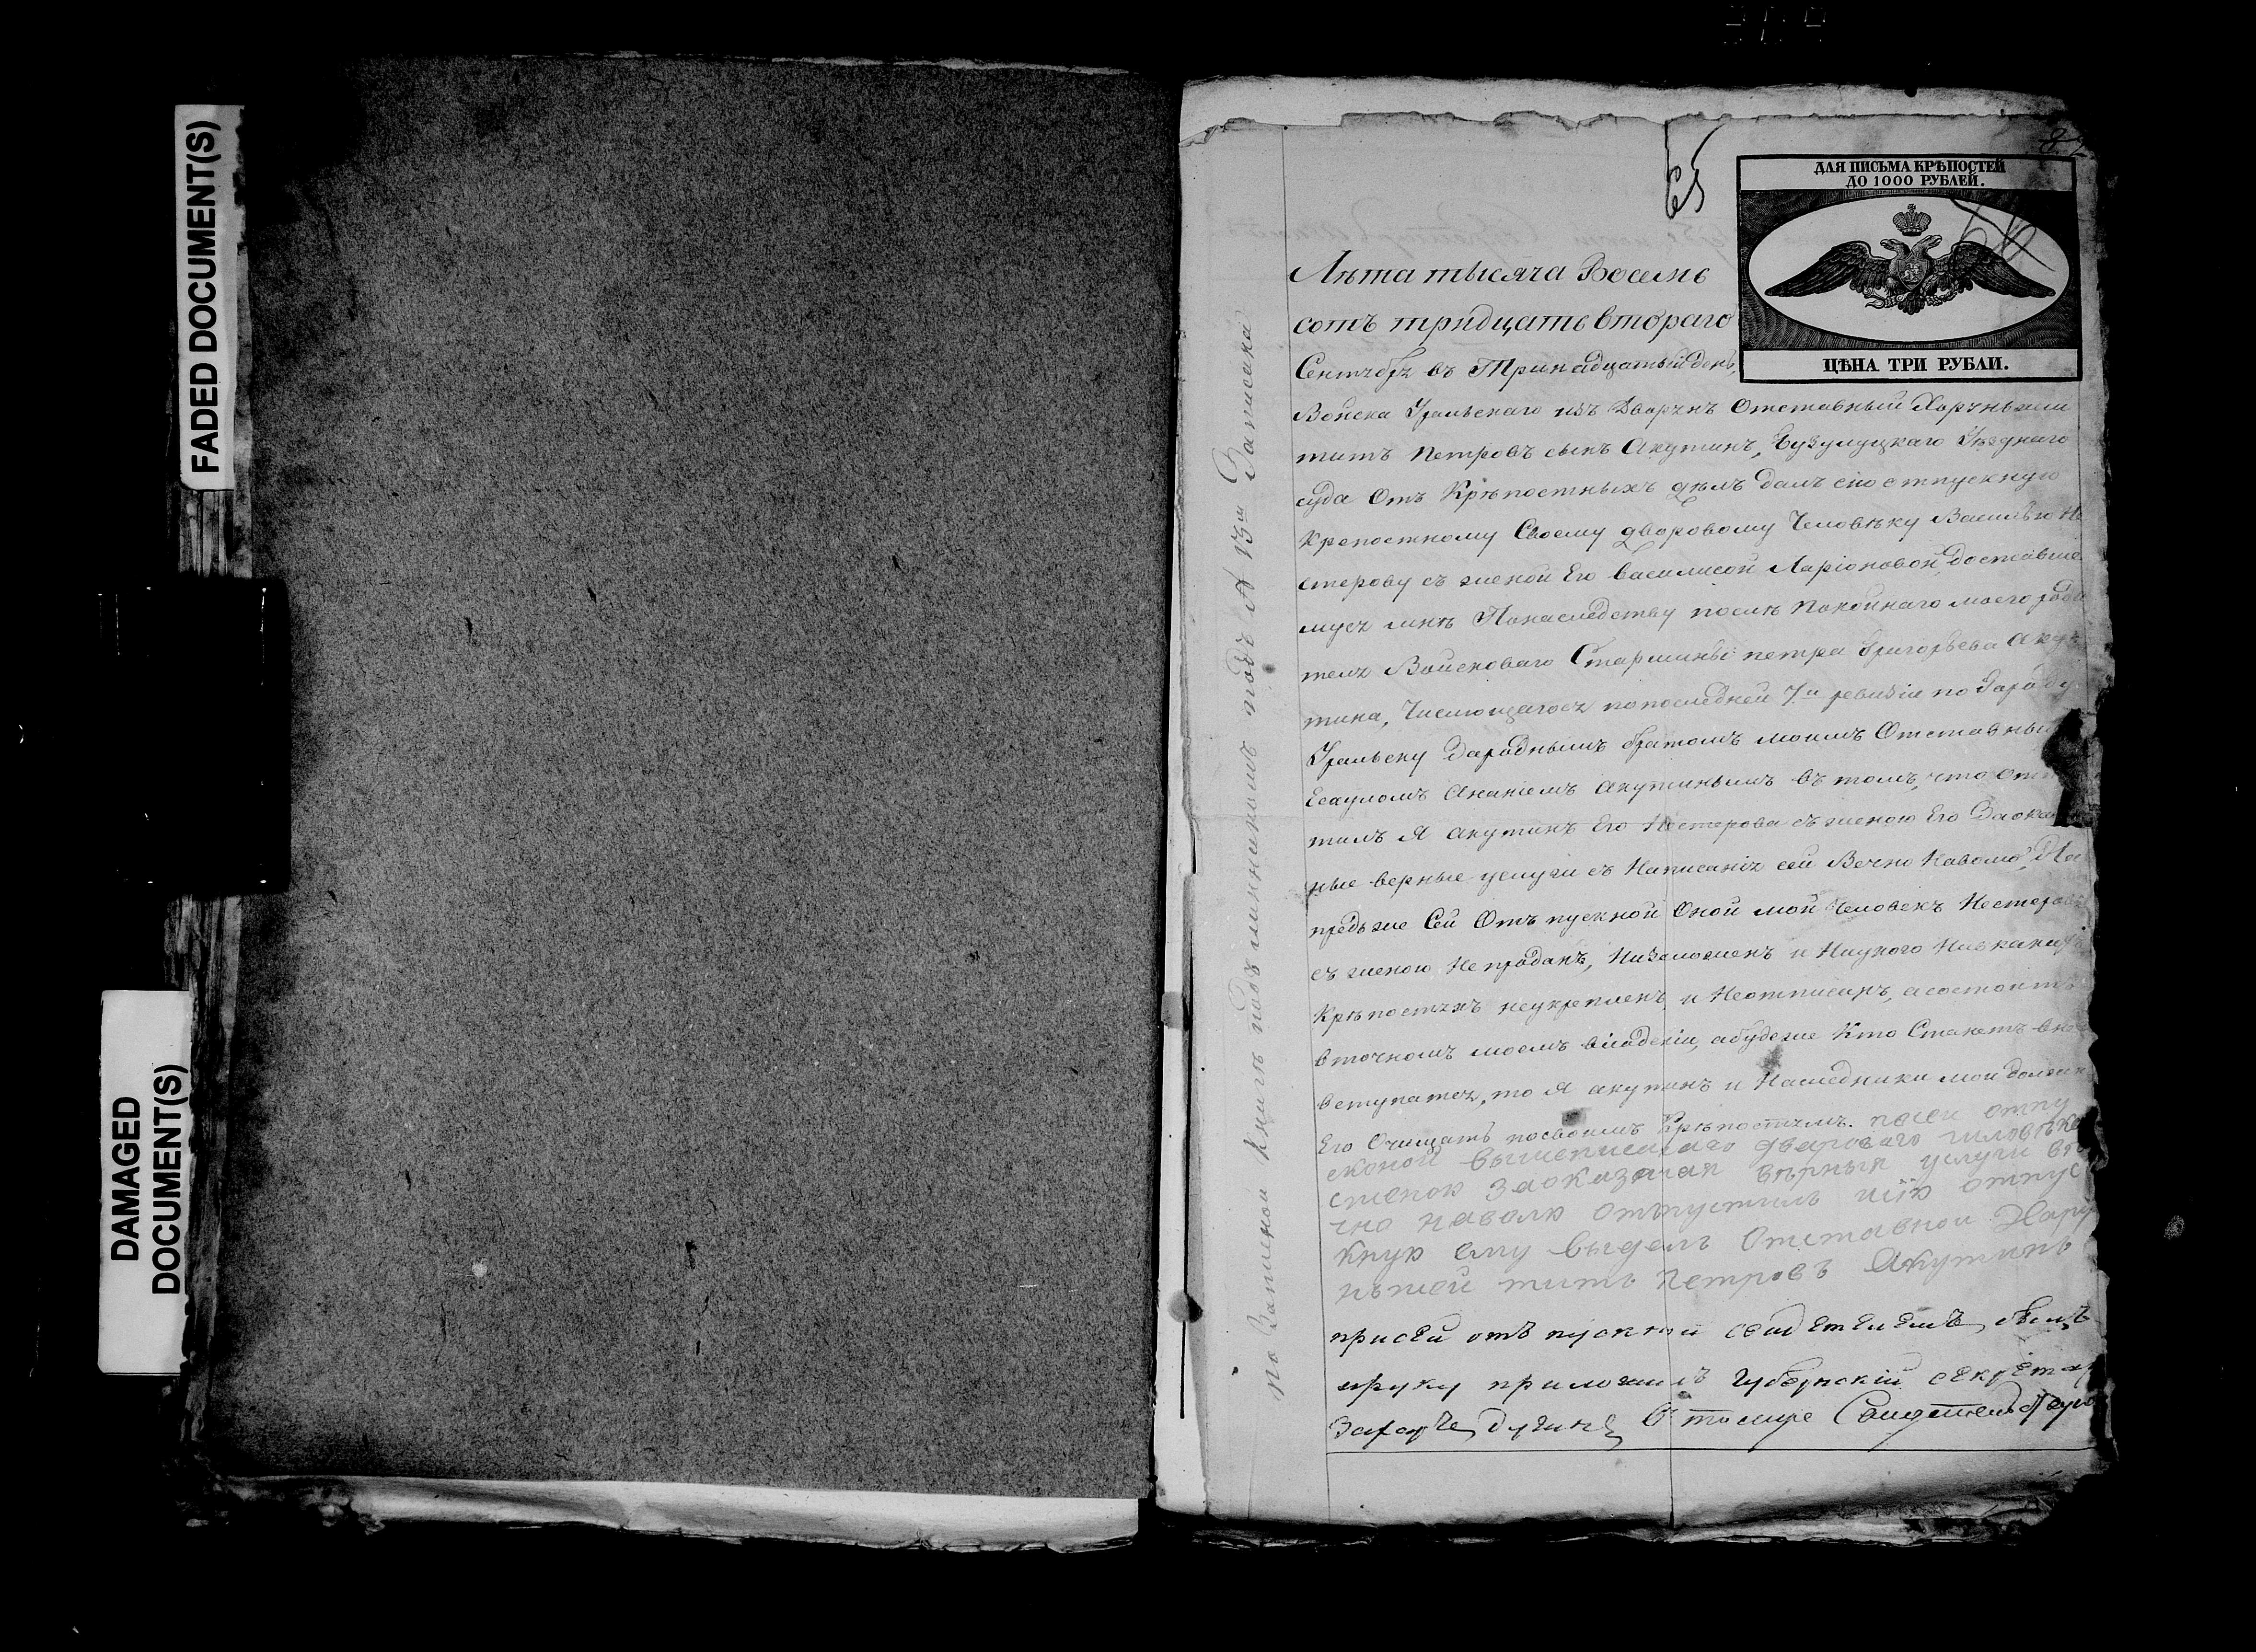 FADED DOCUMENT(S)
DAMAGED
DOCUMENT(S)
65
ДЛЯ ПИСЬМА КРѢПОСТЕЙ
ДО 1000 РУБЛЕЙ.
ЦѢНА ТРИ РУБЛИ.
Лѣта тысяча Восемь
сотъ тридцать втораго
Сентября въ Тринадцатый день,
Войска Уральскаго изъ Дворянъ Отставный Харунжей
титъ Петровъ сынъ Акутинъ, Бузулуцкаго Уѣзднаго
суда Отъ Крѣпостныхъ дѣлъ далъ сію отпускную
крепостному Своему дворовому Человѣку Василью Не
стерову съ женой Его василисой Ларіоновой, доставше
муся мнѣ Понаследству послѣ покойнаго моего роди
теля Войсковаго Старшины петра Григорьева Аку
тина, Числющагося попоследней 7й ревизіи по Городу
Уральску Зароднымъ братомъ моимъ Отставным
Есауломъ Ананіемъ акутинымъ въ томъ, что отпу
тилъ Я акутинъ Его Нестерова съ женою Его Заоказа
ные верные услуги съ Написанія сей Вечно Наволю, На
предь же Сей Отъ пускной Оной мой Человекъ Нестеровъ
съ женою Не проданъ, Низаложенъ и Ниукого Нивкакихъ
Крѣпостяхъ неукрепленъ, и Неотписанъ, а состоитъ
вточномъ моемъ владеніи, абудеже Кто Станетъ вне
вступатся, то Я акутинъ и Наследники мои должн
Его Очищать посвоимъ Крѣпостямъ. посеи отпу
скной вышеписанаго двароваго человѣка
сженою Заоказаныя вѣрныя услуги вѣ
чно наволю отпустилъ исію отпус
кную ему выделъ Отставной Хару
нжей титъ петровъ Акутинъ
присей отъ пускной свидетелемъ, былъ
ируку приложилъ губернскій секретарь
Захаръ
Втомже Свидетель
по Записной Книгѣ подлиннникомъ подъ № 13м Записана